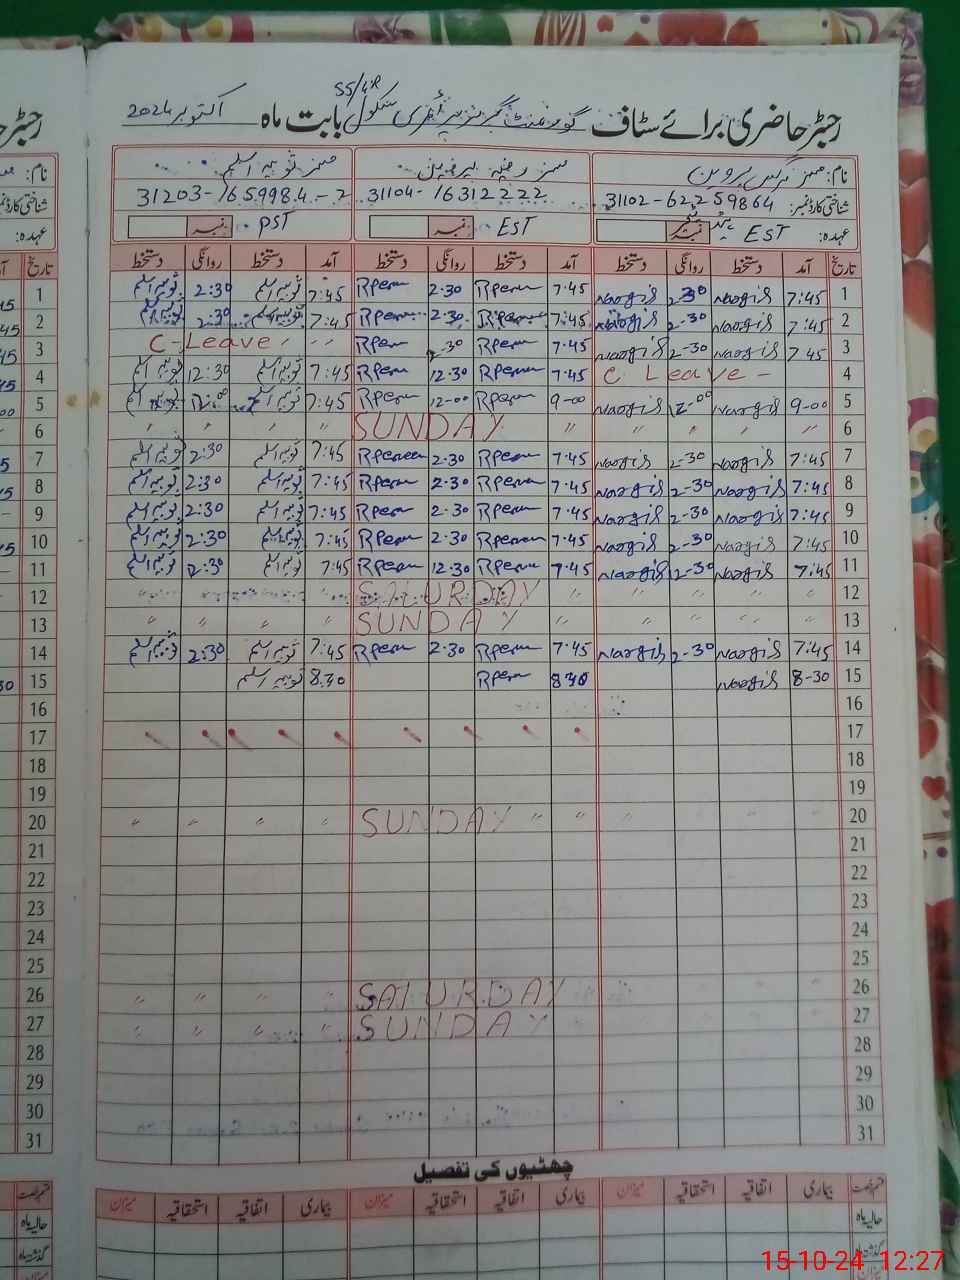 55/4R
رجسٹر حاضری برائے سٹاف گورنمنٹ گرلز پرائمری سکول بابت ماہ اکتوبر 2024
نام: مسز نرگس پروین مسز رضیہ پروین مسز ثوبیہ اسلم
شناختی کارڈ نمبر: 31102-62259864 31104-16312222 31203-1659984-2
عہدہ: EST ہیڈ نمبر EST نمبر PST نمبر
تاریخ آمد دستخط روانگی دستخط آمد دستخط روانگی دستخط آمد دستخط روانگی دستخط
1 7:45 Nargis 2-30 Nargis 7.45 Rperen 2.30 Rperen 7:45 ثوبیہ اسلم 2:30 ثوبیہ اسلم
2 7:45 Nargis 2-30 Nargis 7:45 Rperen 2.30 Rperen 7:45 ثوبیہ اسلم 2:30 ثوبیہ اسلم
3 7 45 Nargis 2-30 Nargis 7.45 Rperen 2.30 Rperen C-Leave
4 C Leave - 7.45 Rperen 12.30 Rperen 7:45 ثوبیہ اسلم 12:30 ثوبیہ اسلم
5 9-00 Nargis 12-00 Nargis 9-00 Rperen 12-00 Rperen 7:45 ثوبیہ اسلم 12:00 ثوبیہ اسلم
6 SUNDAY
7 7:45 Nargis 2-30 Nargis 7.45 Rperen 2.30 Rperen 7:45 ثوبیہ اسلم 2:30 ثوبیہ اسلم
8 7:45 Nargis 2-30 Nargis 7.45 Rperen 2.30 Rperen 7:45 ثوبیہ اسلم 2:30 ثوبیہ اسلم
9 7:45 Nargis 2-30 Nargis 7.45 Rperen 2.30 Rperen 7:45 ثوبیہ اسلم 2:30 ثوبیہ اسلم
10 7:45 Nargis 2-30 Nargis 7.45 Rperen 2.30 Rperen 7:45 ثوبیہ اسلم 2:30 ثوبیہ اسلم
11 7:45 Nargis 2-30 Nargis 7.45 Rperen 12.30 Rperen 7:45 ثوبیہ اسلم 2:30 ثوبیہ اسلم
12 SATURDAY
13 SUNDAY
14 7:45 Nargis 2-30 Nargis 7.45 Rperen 2.30 Rperen 7:45 ثوبیہ اسلم 2:30 ثوبیہ اسلم
15 8-30 Nargis 830 Rperen 8.30 ثوبیہ اسلم
16
17
18
19
20 SUNDAY
21
22
23
24
25
26 SATURDAY
27 SUNDAY
28
29
30
31
چھٹیوں کی تفصیل
قسم رخصت بیماری اتفاقیہ استحقاقیہ میزان بیماری اتفاقیہ استحقاقیہ میزان بیماری اتفاقیہ استحقاقیہ میزان
حالیہ ماہ
گذشتہ ماہ
میزان
15-10-24 12:27